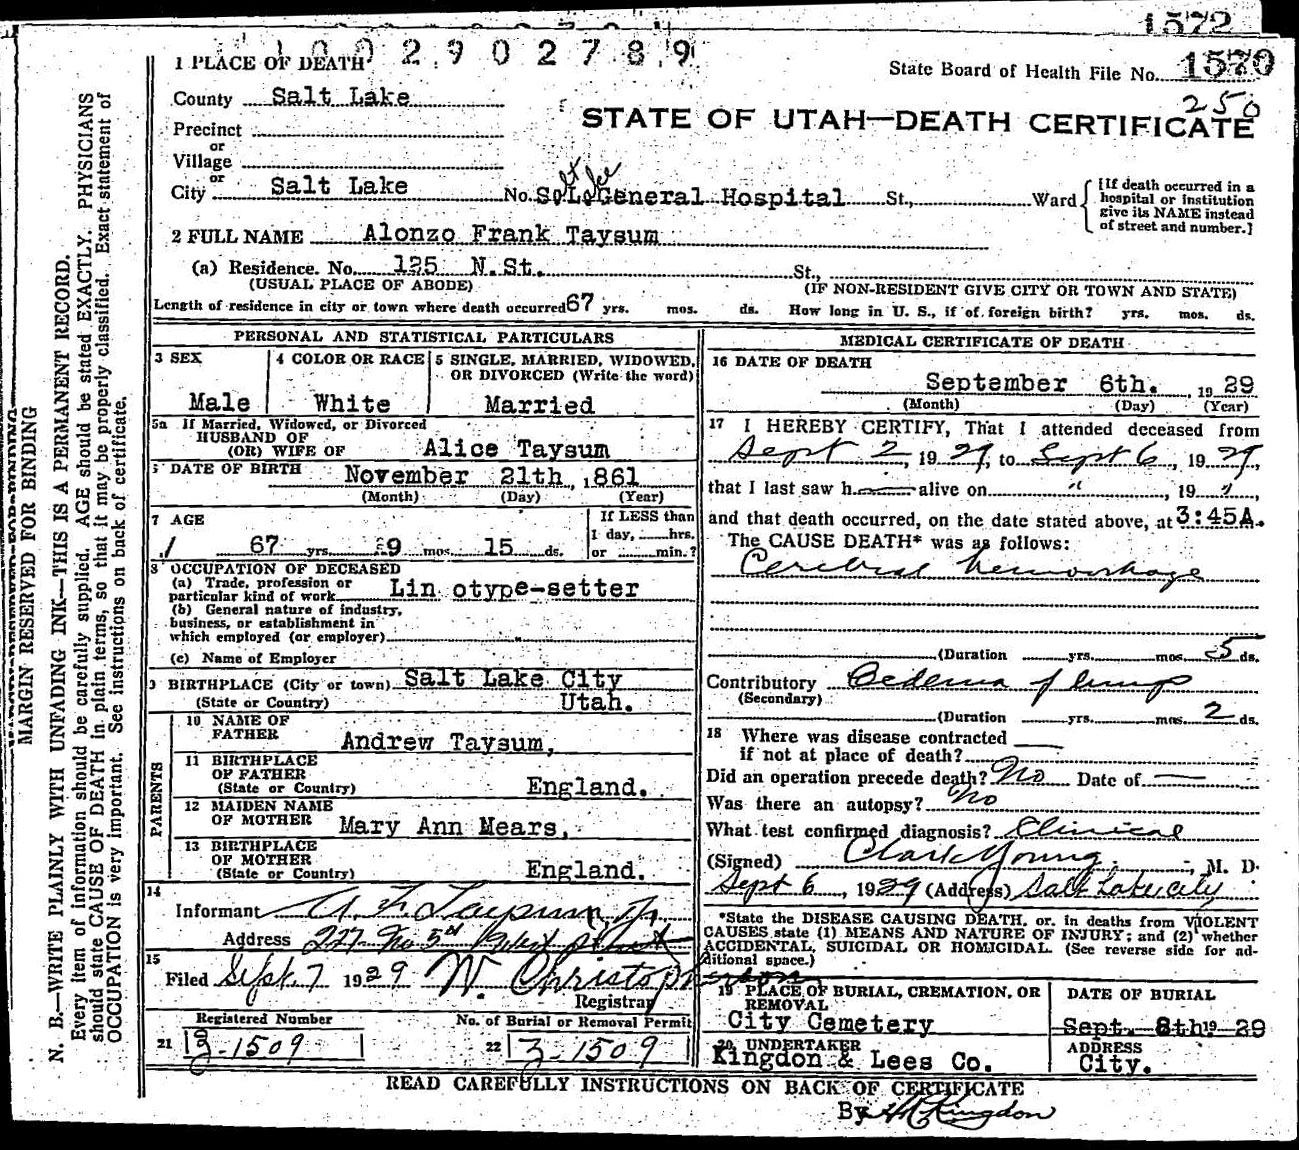 1572
1002902789
1 PLACE OF DEATH
State Board of Health File No. 1570
250
County Salt Lake
STATE OF UTAH—DEATH CERTIFICATE
Precinct
or
Village
or
City Salt Lake No. Salt Lake General Hospital St., Ward
[If death occurred in a hospital or institution give its NAME instead of street and number.]
2 FULL NAME Alonzo Frank Taysum
(a) Residence. No. 125 N.St. St.,
(USUAL PLACE OF ABODE) (IF NON-RESIDENT GIVE CITY OR TOWN AND STATE)
Length of residence in city or town where death occurred 67 yrs. mos. ds. How long in U. S., if of foreign birth? yrs. mos. ds.
PERSONAL AND STATISTICAL PARTICULARS
3 SEX
Male
4 COLOR OR RACE
White
5 SINGLE, MARRIED, WIDOWED, OR DIVORCED (Write the word)
Married
5a If Married, Widowed, or Divorced
HUSBAND OF
(OR) WIFE OF Alice Taysum
DATE OF BIRTH November 21th, 1861
(Month) (Day) (Year)
7 AGE
67 yrs. 9 mos. 15 ds.
If LESS than
1 day, hrs.
or min.?
8 OCCUPATION OF DECEASED
(a) Trade, profession or
particular kind of work Lin otype-setter
(b) General nature of industry,
business, or establishment in
which employed (or employer)
(c) Name of Employer
9 BIRTHPLACE (City or town) Salt Lake City
(State or Country) Utah.
PARENTS
10 NAME OF
FATHER Andrew Taysum,
11 BIRTHPLACE
OF FATHER
(State or Country) England.
12 MAIDEN NAME
OF MOTHER Mary Ann Mears,
13 BIRTHPLACE
OF MOTHER
(State or Country) England.
14
Informant A. F. Taysum Jr.
Address 227 No 5th West
15
Filed Sept. 7 1929 W. Christopherson
Registrar
Registered Number
21 3-1509
No. of Burial or Removal Permit
22 3-1509
MEDICAL CERTIFICATE OF DEATH
16 DATE OF DEATH
September 6th. , 1929
(Month) (Day) (Year)
17 I HEREBY CERTIFY, That I attended deceased from
Sept 2, 1929, to Sept 6, 1929,
that I last saw h alive on " , 19 "
and that death occurred, on the date stated above, at 3:45A.
The CAUSE DEATH* was as follows:
Cerebral hemorrhage
(Duration yrs. mos. 5 ds.
Contributory Oedema of lungs
(Secondary)
(Duration yrs. mos. 2 ds.
18 Where was disease contracted
if not at place of death?
Did an operation precede death? No Date of
Was there an autopsy? No
What test confirmed diagnosis? Clinical
(Signed) Clark Young, M. D.
Sept 6, 1929 (Address) Salt Lake City
*State the DISEASE CAUSING DEATH, or, in deaths from VIOLENT
CAUSES state (1) MEANS AND NATURE OF INJURY; and (2) whether
ACCIDENTAL, SUICIDAL OR HOMICIDAL. (See reverse side for ad-
ditional space.)
19 PLACE OF BURIAL, CREMATION, OR
REMOVAL
City Cemetery
DATE OF BURIAL
Sept. 8th 19 29
20 UNDERTAKER
Kingdon & Lees Co.
ADDRESS
City.
READ CAREFULLY INSTRUCTIONS ON BACK OF CERTIFICATE
By H C Kingdon
MARGIN RESERVED FOR BINDING
N. B.—WRITE PLAINLY WITH UNFADING INK—THIS IS A PERMANENT RECORD.
Every item of information should be carefully supplied. AGE should be stated EXACTLY. PHYSICIANS
should state CAUSE OF DEATH in plain terms, so that it may be properly classified. Exact statement of
OCCUPATION is very important. See instructions on back of certificate.